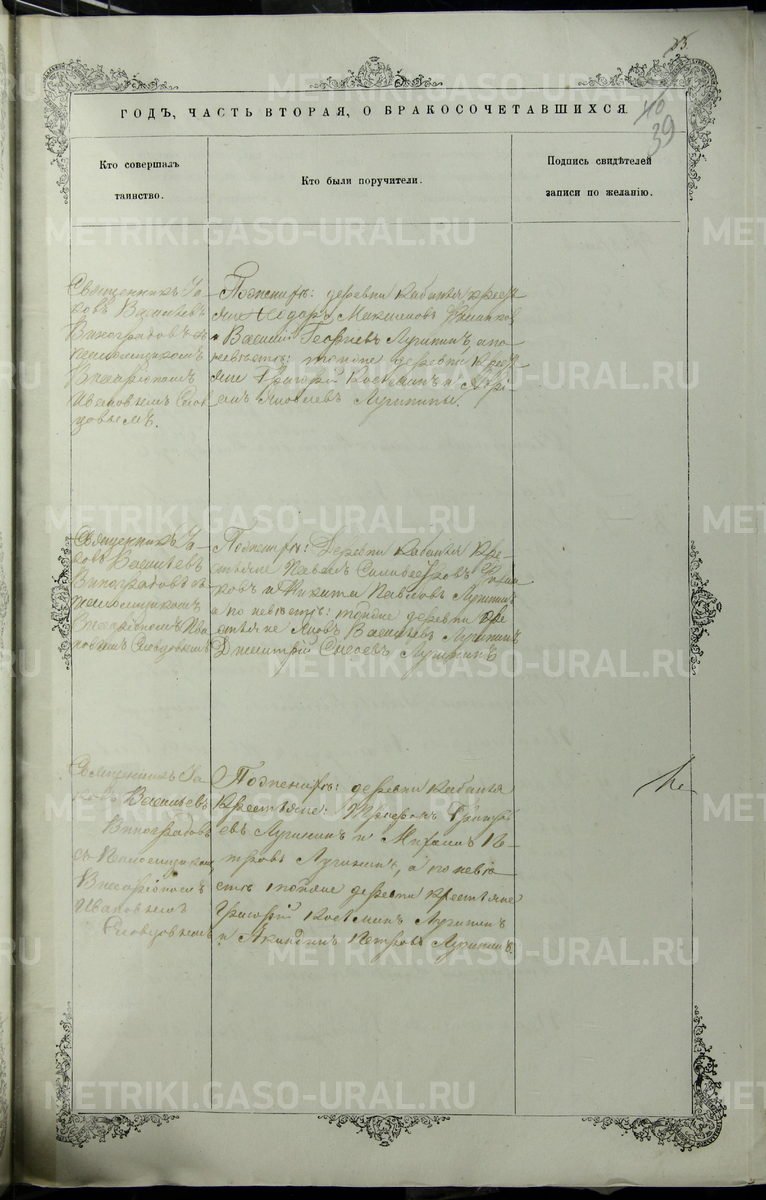 23.
ГОДЪ, ЧАСТЬ ВТОРАЯ, О БРАКОСОЧЕТАВШИХСЯ.
40
39
Кто совершалъ
таинство.
Кто были поручители.
Подпись свидѣтелей
записи по желанію.
Священникъ Іа-
ковъ Васильевъ
Виноградовъ съ
псаломщикомъ
Виссаріономъ
Ивановымъ Слов
цовымъ.
По женихѣ: деревни Кабанья кресть
яне Ѳедоръ Максимовъ
и Василій Георгіевъ Лучининъ, а по
невѣстѣ: тойже деревни крест
яне Григорій Косьминъ и
Яковлевъ Лучинины.
Священникъ Іа-
ковъ Васильевъ
Виноградовъ съ
псаломщикомъ
Виссаріономъ Ива
новымъ Словцовымъ
По женихѣ: Деревни Кабанья Кре-
стьяне Павелъ
и Никита Павловъ Лучинин
а по невѣстѣ: тойже деревни Кре
стьяне Яковъ Васильевъ Лучининъ
Дмитрій Лучининъ
Священникъ Іа-
ковъ Васильевъ
Виноградовъ
съ Псаломщикомъ
Виссаріономъ
Ивановымъ
Словцовымъ
По женихѣ: деревни Кабанья
Крестьяне: Григорь
евъ Лучининъ и Михаилъ Пе-
тровъ Лучининъ, а по невѣ
стѣ тойже деревни крестьяне
Григорій Косьминъ Лучининъ
и Акиндинъ Петровъ Лучининъ.
METRIKI.GASO-URAL.RU